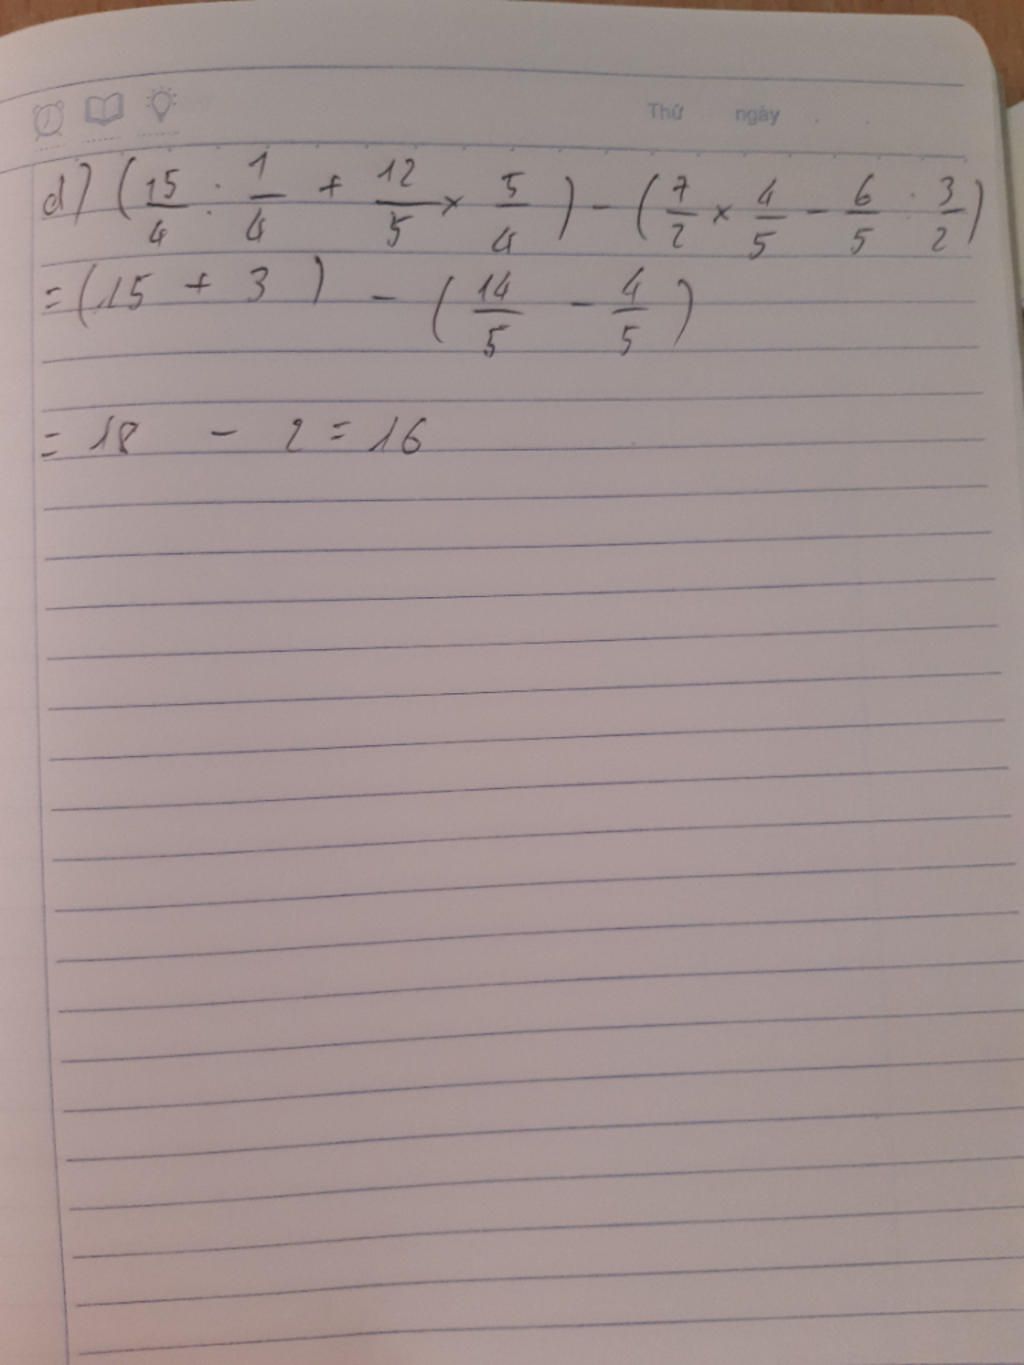 Thứ ngày
d) (15/4 : 1/4 + 12/5 × 5/4) - (7/2 × 4/5 - 6/5 : 3/2)
= (15 + 3) - (14/5 - 4/5)
= 18 - 2 = 16